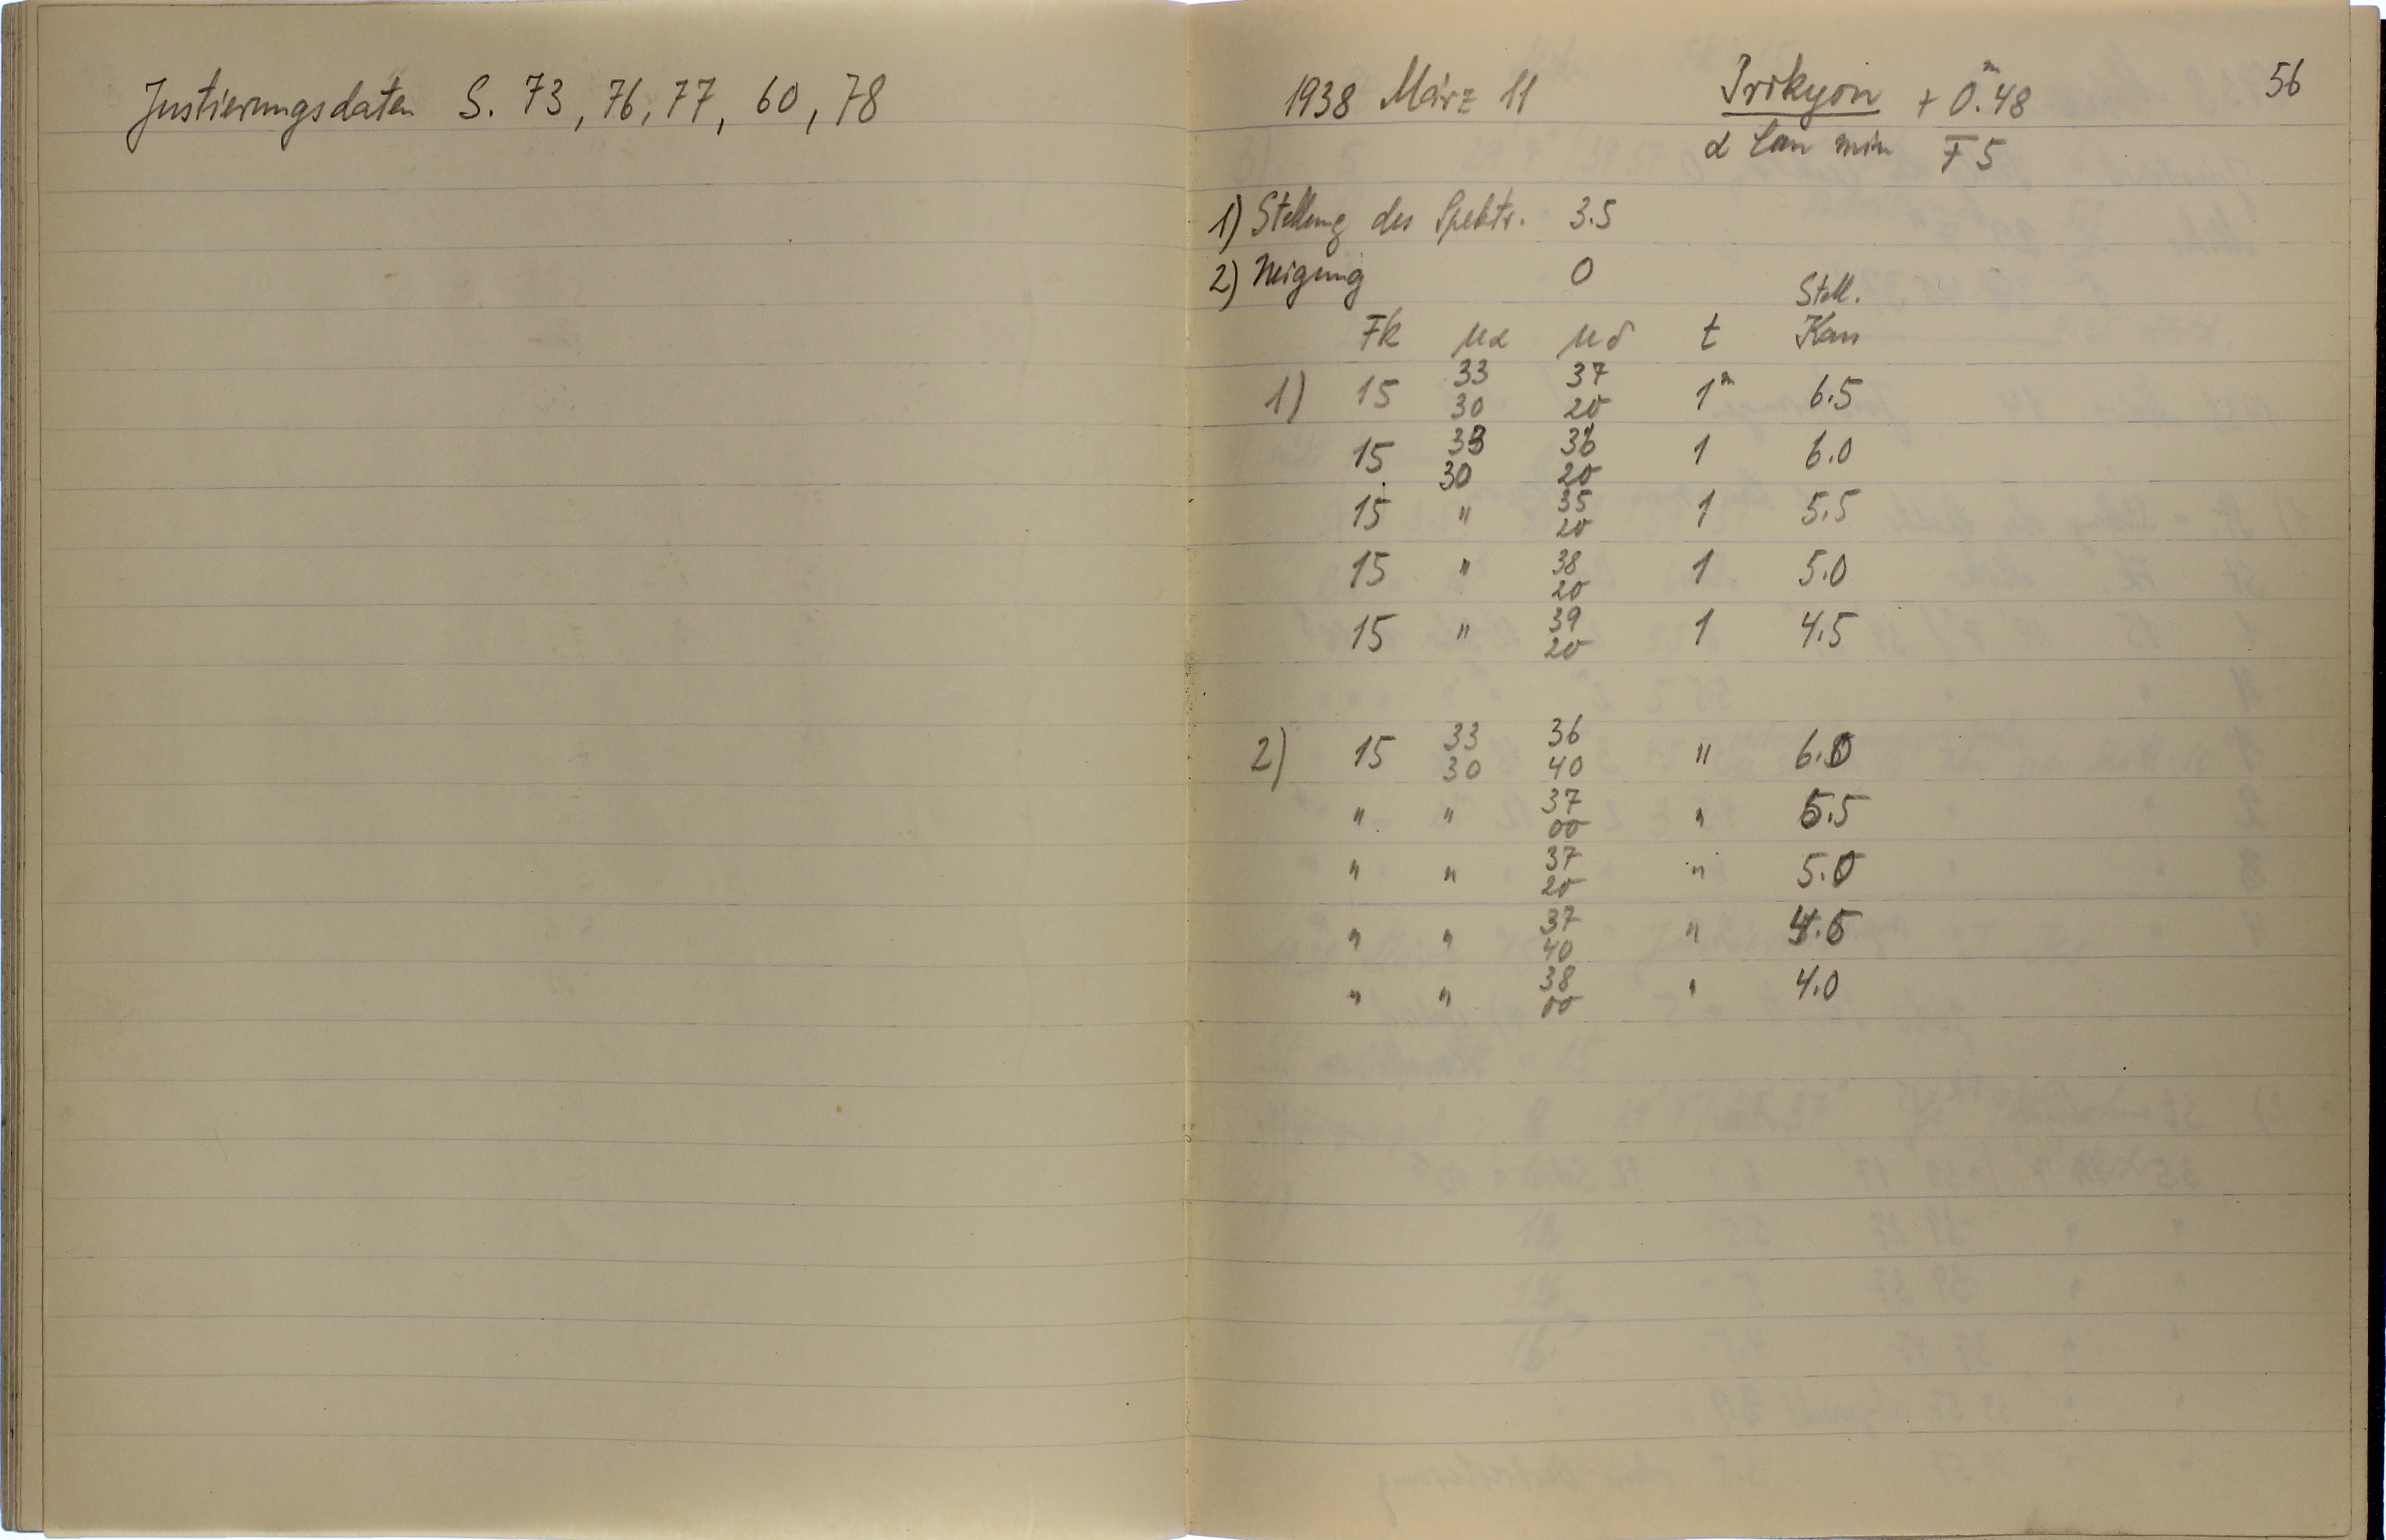 Justierungsdaten S. 73, 76, 77, 60, 78
56
1938 März 11 Prokyon + 0.ᵐ48
α Can min F5
1) Stellung des Spektr. 3.5
2) Neigung 0
Stell.
Fk μα μδ t Kam
33 37
1) 15 30 20 1ᵐ 6.5
33 36
15 30 20 1 6.0
35
15 " 20 1 5.5
38
15 " 20 1 5.0
39
15 " 20 1 4.5
33 36
2) 15 30 40 " 6.0
37
" " 00 " 5.5
37
" " 20 " 5.0
37
" " 40 " 4.5
38
" " 00 " 4.0